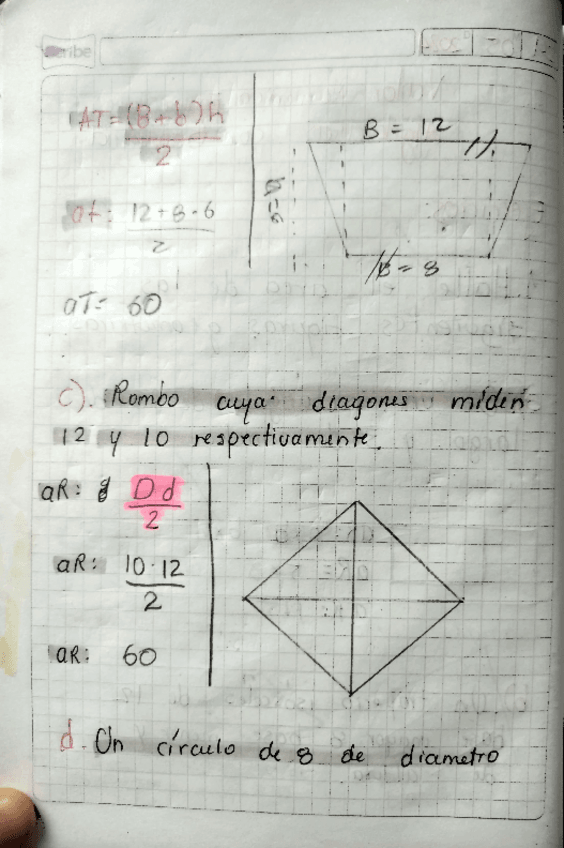 AT = (B + b) h
2
B = 12
at: 12 + 8 · 6
2
B = 8
aT = 60
c). Rombo cuya diagones miden
12 y 10 respectivamente.
aR: D d
2
aR: 10 · 12
2
aR: 60
d. Un círculo de 8 de diametro